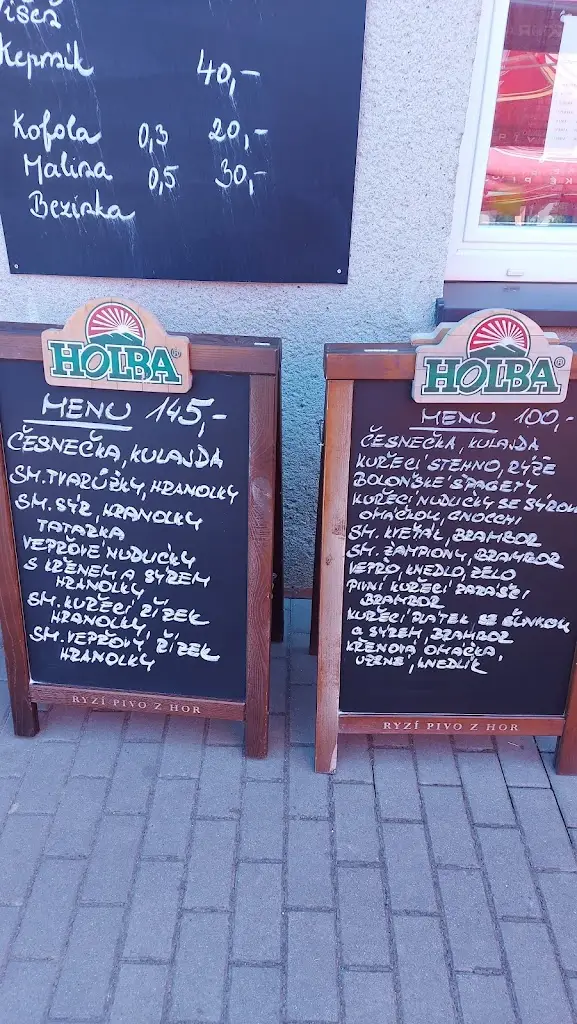 Kepmík 40,-
Kofola 0,3 20,-
Malina 0,5 30,-
Bezinka
HOLBA®
MENU 145,-
ČESNEČKA, KULAJDA
SM. TVARŮŽKY, HRANOLKY
SM. SÝR, HRANOLKY
TATARKA
VEPŘOVÉ NUDLIČKY
S KŘENEM A SÝREM
HRANOLKY
SM. KUŘECÍ ŘÍZEK
HRANOLKY
SM. VEPŘOVÝ ŘÍZEK
HRANOLKY
RYZÍ PIVO Z HOR
HOLBA®
MENU 100,-
ČESNEČKA, KULAJDA
KUŘECÍ STEHNO, RÝŽE
BOLOŇSKÉ ŠPAGETY
KUŘECÍ NUDLIČKY SE SÝROVOU
OMÁČKOU, GNOCCHI
SM. KVĚTÁK, BRAMBOR
SM. ŽAMPIONY, BRAMBOR
VEPŘO, KNEDLO, ZELO
PIVNÍ KUŘECÍ PAPRSČI
BRAMBOR
KUŘECÍ PLÁTEK SE ŠUNKOU
A SÝREM, BRAMBOR
KŘENOVÁ OMÁČKA,
UZENÉ, KNEDLÍK
RYZÍ PIVO Z HOR